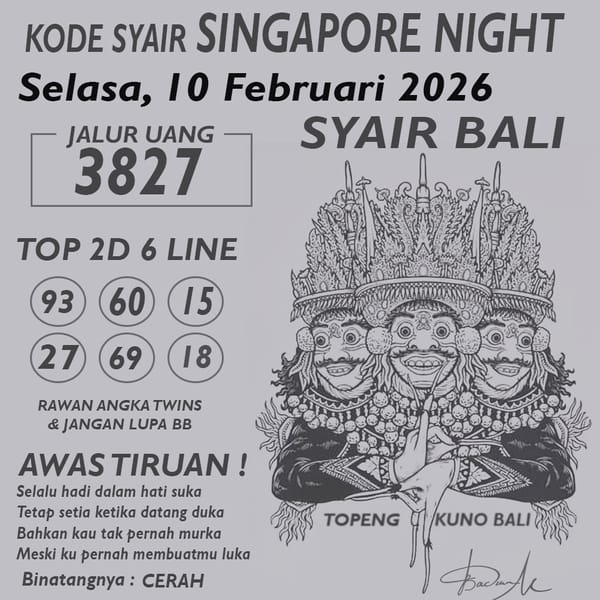 KODE SYAIR SINGAPORE NIGHT
Selasa, 10 Februari 2026
JALUR UANG
3827
SYAIR BALI
TOP 2D 6 LINE
93 60 15
27 69 18
RAWAN ANGKA TWINS
& JANGAN LUPA BB
AWAS TIRUAN !
Selalu hadi dalam hati suka
Tetap setia ketika datang duka
Bahkan kau tak pernah murka
Meski ku pernah membuatmu luka
Binatangnya : CERAH
TOPENG KUNO BALI